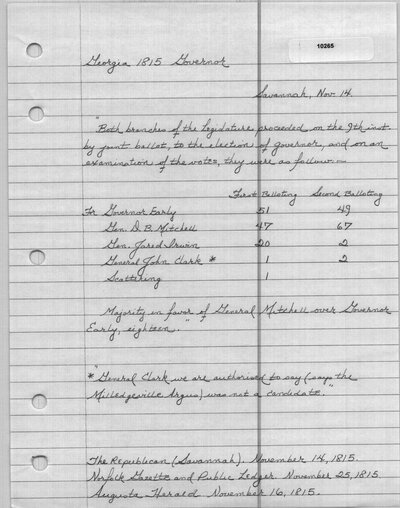 10265
Georgia 1815 Governor
Savannah, Nov 14.
"Both branches of the Legislature, proceeded, on the 9th inst.
by joint ballot, to the election of governor, and on an
examination of the votes, they were as follows:—
First Balloting Second Balloting
For Governor Early 51 49
Gen. D. B. Mitchell 47 67
Gen. Jared Irwin 20 2
General John Clark * 1 2
Scattering 1
Majority in favor of General Mitchell over Governor
Early, eighteen."
* "General Clark we are authorised to say (says the
Milledgeville Argus) was not a candidate."
The Republican (Savannah). November 14, 1815.
Norfolk Gazette and Public Ledger. November 25, 1815.
Augusta Herald November 16, 1815.